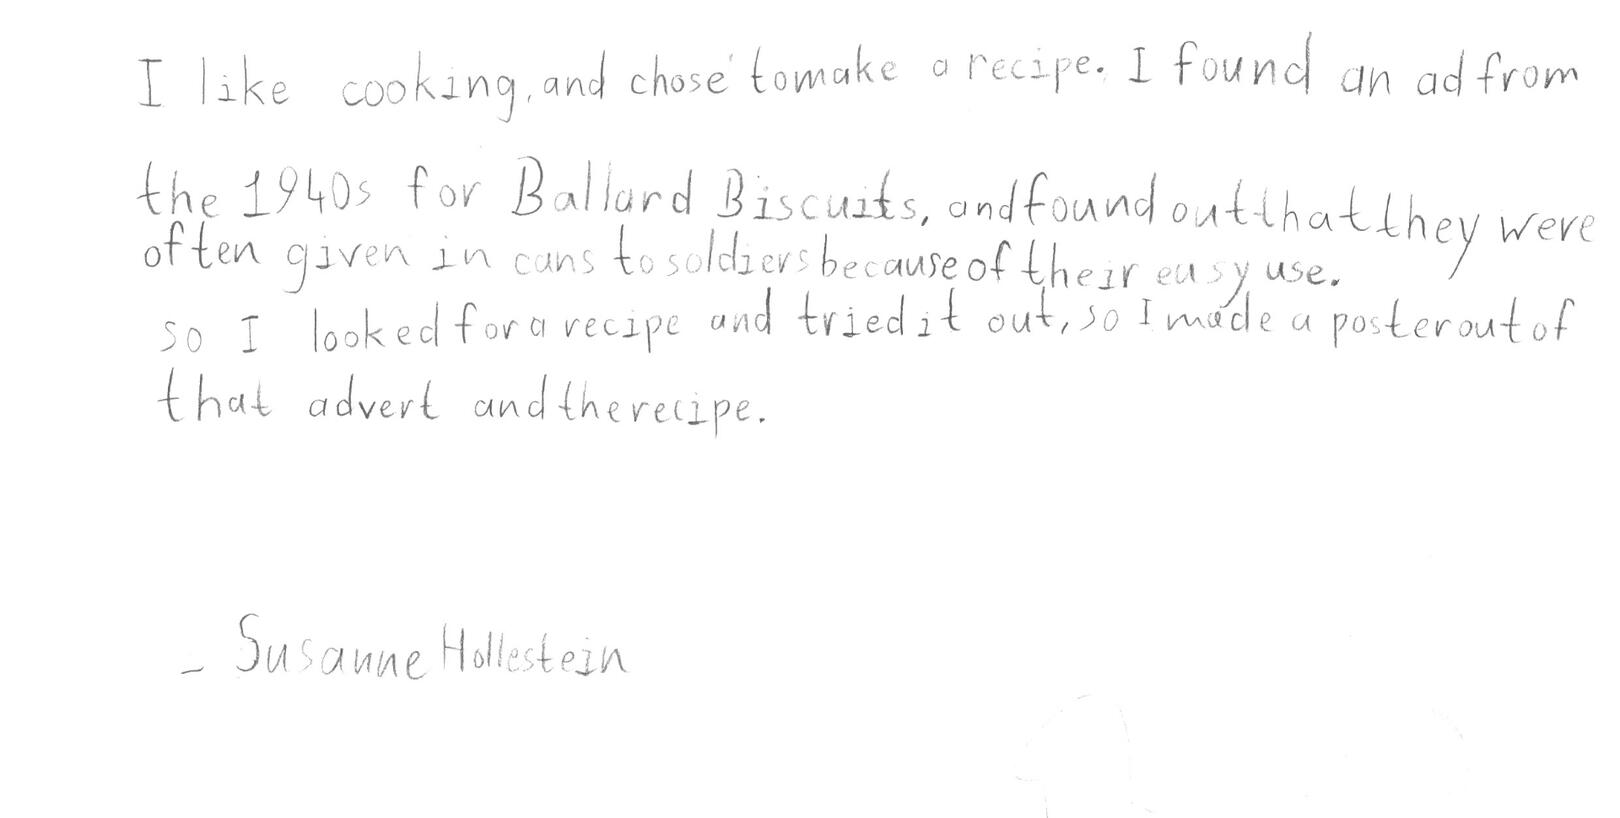 I like cooking, and chose to make a recipe. I found an ad from
the 1940s for Ballard Biscuits, and found out that they were
often given in cans to soldiers because of their easy use.
so I looked for a recipe and tried it out, so I made a poster out of
that advert and the recipe.
- Susanne Hollestein